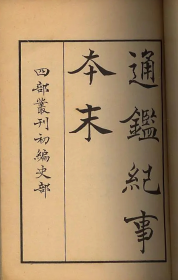 通鑑紀事
本末
四部叢刊初編史部